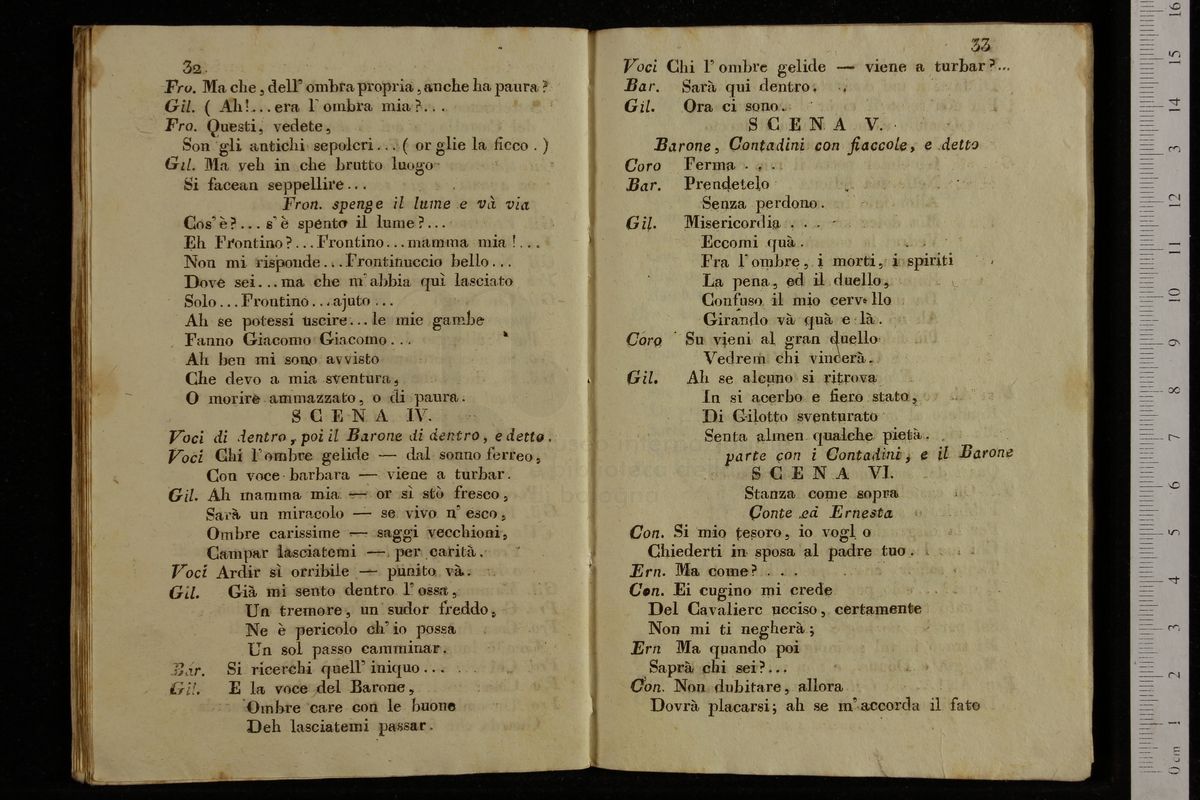 32.
Fro. Ma che, dell' ombra propria, anche ha paura?
Gil. ( Ah!... era l' ombra mia?...
Fro. Questi, vedete,
Son gli antichi sepolcri... ( or glie la ficco . )
Gil. Ma veh in che brutto luogo
Si facean seppellire...
Fron. spenge il lume e và via
Cos' è?... s' è spento il lume?...
Eh Frontino?...Frontino...mamma mia!...
Non mi risponde...Frontinuccio bello...
Dove sei...ma che m' abbia quì lasciato
Solo...Frontino...ajuto...
Ah se potessi uscire...le mie gambe
Fanno Giacomo Giacomo...
Ah ben mi sono avvisto
Che devo a mia sventura,
O morire ammazzato, o di paura.
SCENA IV.
Voci di dentro, poi il Barone di dentro, e detto.
Voci Chi l' ombre gelide — dal sonno ferreo,
Con voce barbara — viene a turbar.
Gil. Ah mamma mia — or si stò fresco,
Sarà un miracolo — se vivo n' esco,
Ombre carissime — saggi vecchioni,
Campar lasciatemi — per carità.
Voci Ardir sì orribile — punito và.
Gil. Già mi sento dentro l' ossa,
Un tremore, un sudor freddo,
Ne è pericolo ch' io possa
Un sol passo camminar.
Bar. Si ricerchi quell' iniquo...
Gil. E la voce del Barone,
Ombre care con le buone
Deh lasciatemi passar.
33
Voci Chi l' ombre gelide — viene a turbar?...
Bar. Sarà qui dentro.
Gil. Ora ci sono.
SCENA V.
Barone, Contadini con fiaccole, e detto
Coro Ferma . . .
Bar. Prendetelo
Senza perdono.
Gil. Misericordia . . .
Eccomi quà.
Fra l' ombre, i morti, i spiriti
La pena, ed il duello,
Confuso il mio cervello
Girando và quà e là.
Coro Su vieni al gran duello
Vedrem chi vincerà.
Gil. Ah se alcuno si ritrova
In si acerbo e fiero stato,
Di Gilotto sventurato
Senta almen qualche pietà.
parte con i Contadini, e il Barone
SCENA VI.
Stanza come sopra
Conte ed Ernesta
Con. Si mio tesoro, io vogl o
Chiederti in sposa al padre tuo.
Ern. Ma come? . . .
Con. Ei cugino mi crede
Del Cavaliere ucciso, certamente
Non mi ti negherà;
Ern Ma quando poi
Saprà chi sei?...
Con. Non dubitare, allora
Dovrà placarsi; ah se m' accorda il fato
0 cm 1 2 3 4 5 6 7 8 9 10 11 12 13 14 15 16